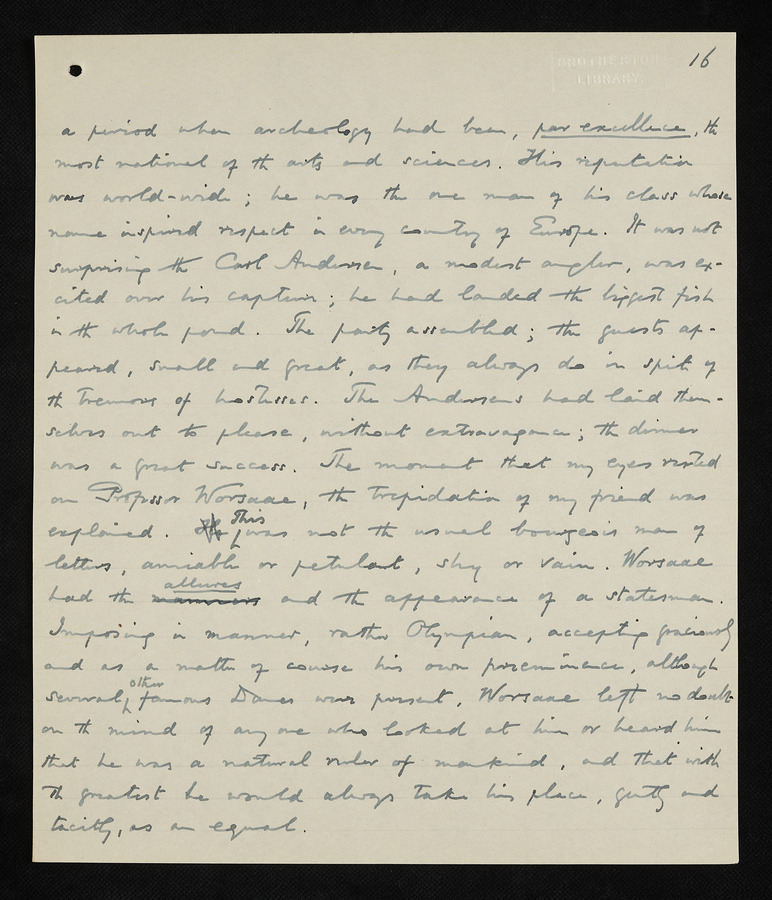 BROTHERTON
LIBRARY
16
a period when archeology had been, par excellence, the
most national of the arts and sciences. His reputation
was world-wide; he was the one man of his class whose
name inspired respect in every country of Europe. It was not
surprising the Carl Andersen, a modest angler, was ex-
cited over his capture; he had landed the biggest fish
in the whole pond. The party assembled; the guests ap-
peared, small and great, as they always do in spite of
the tremors of hostesses. The Andersens had laid them-
selves out to please, without extravagance; the dinner
was a great success. The moment that my eyes rested
on Professor Worsaae, the trepidation of my friend was
explained. He This was not the usual bourgeois man of
letters, amiable or petulant, shy or vain. Worsaae
had the manners allures and the appearance of a statesman.
Imposing in manner, rather Olympian, accepting graciously
and as a matter of course his own preeminence, although
several other famous Danes were present, Worsaae left no doubt
on the mind of any one who looked at him or heard him
that he was a natural ruler of mankind, and that with
the greatest he would always take his place, gently and
tacitly, as an equal.